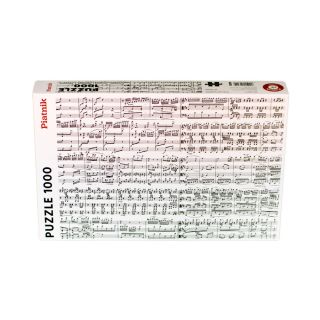 PUZZLE
1000
Piatnik
PUZZLE 1000